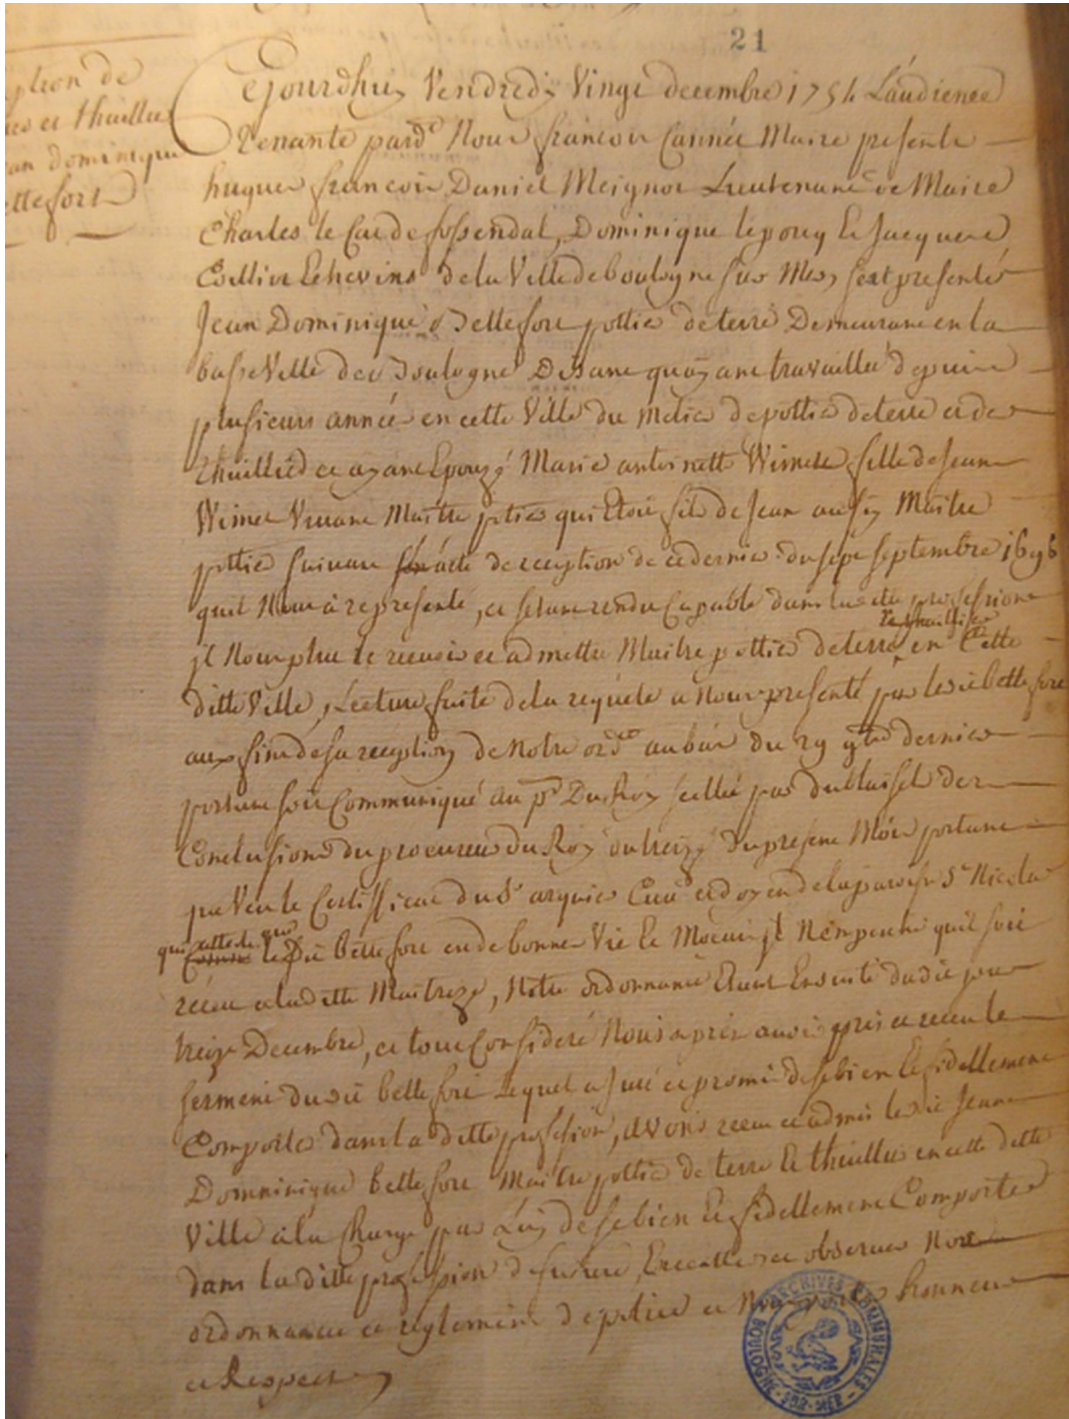 21
ption de
et thuillier
Jean dominique
Bettefort
Cejourdhuy Vendredy Vingt decembre 1754 Laudience
Tenante pard.t Nous francois Cannée Maire presente
hugues francois Daniel Meignot Lieutenant de Maire
Charles le Cat de fossendal, Dominique leporcq Et Jacques
Coillior Echevins de la Ville de boulogne sur Mer, sest presenté
Jean Dominique Bettefort pottier de terre Demeurant en la
basse Ville de Boulogne Disant quayant travaillé depuis
plusieurs année en cette Ville du metier de pottier de terre et de
thuillier et ayant Epouzé Marie antoinette Wimet fille de Jean
Wimet Vivant Maitre potier qui Etoit fils de Jean aussy Maitre
pottier suivant acte de reception de ce dernier du sept septembre 1696
quil Nous a representé, et setant rendu Capable dans la profession
jl Nous plut le recevoir et admettre Maitre pottier de terre et thuillier en Cette
ditte Ville, Lecture faite de la requete a Nous presenté par ledit bettefort
aux fins de sa reception de Notre ord.ce au bas du 29 9bre dernier
portant soit Communiqué au p.r Du Roy scellé par dublaisel des
Conclusions du procureur du Roy du treize du present Mois portant
que Veu le Certifficat du S.r arquier Curé et doyen de la paroisse S.t Nicolas
qui atteste que le Dit bettefort est de bonne Vie Et Moeurs jl Nempeche quil soit
receu a laditte Maitrize, Notre ordonnance Etant Ensuite dudit jour
treize Decembre, et tout Consideré Nous apres avoir pris et receu le
serment dudit bettefort Lequel a Juré et promis de se bien Et fidellement
Comporter dans la ditte profession, avons receu et admis ledit Jean
Dominique bettefort Maitre pottier de terre Et thuillier en cette ditte
Ville a la Charge par Luy de se bien Et fidellement Comporter
dans la ditte profession de suivre, Executer et observer Nos
ordonnances et reglements de police et Nous porter honneur
et Respect
ARCHIVES COMMUNALES BOULOGNE-SUR-MER